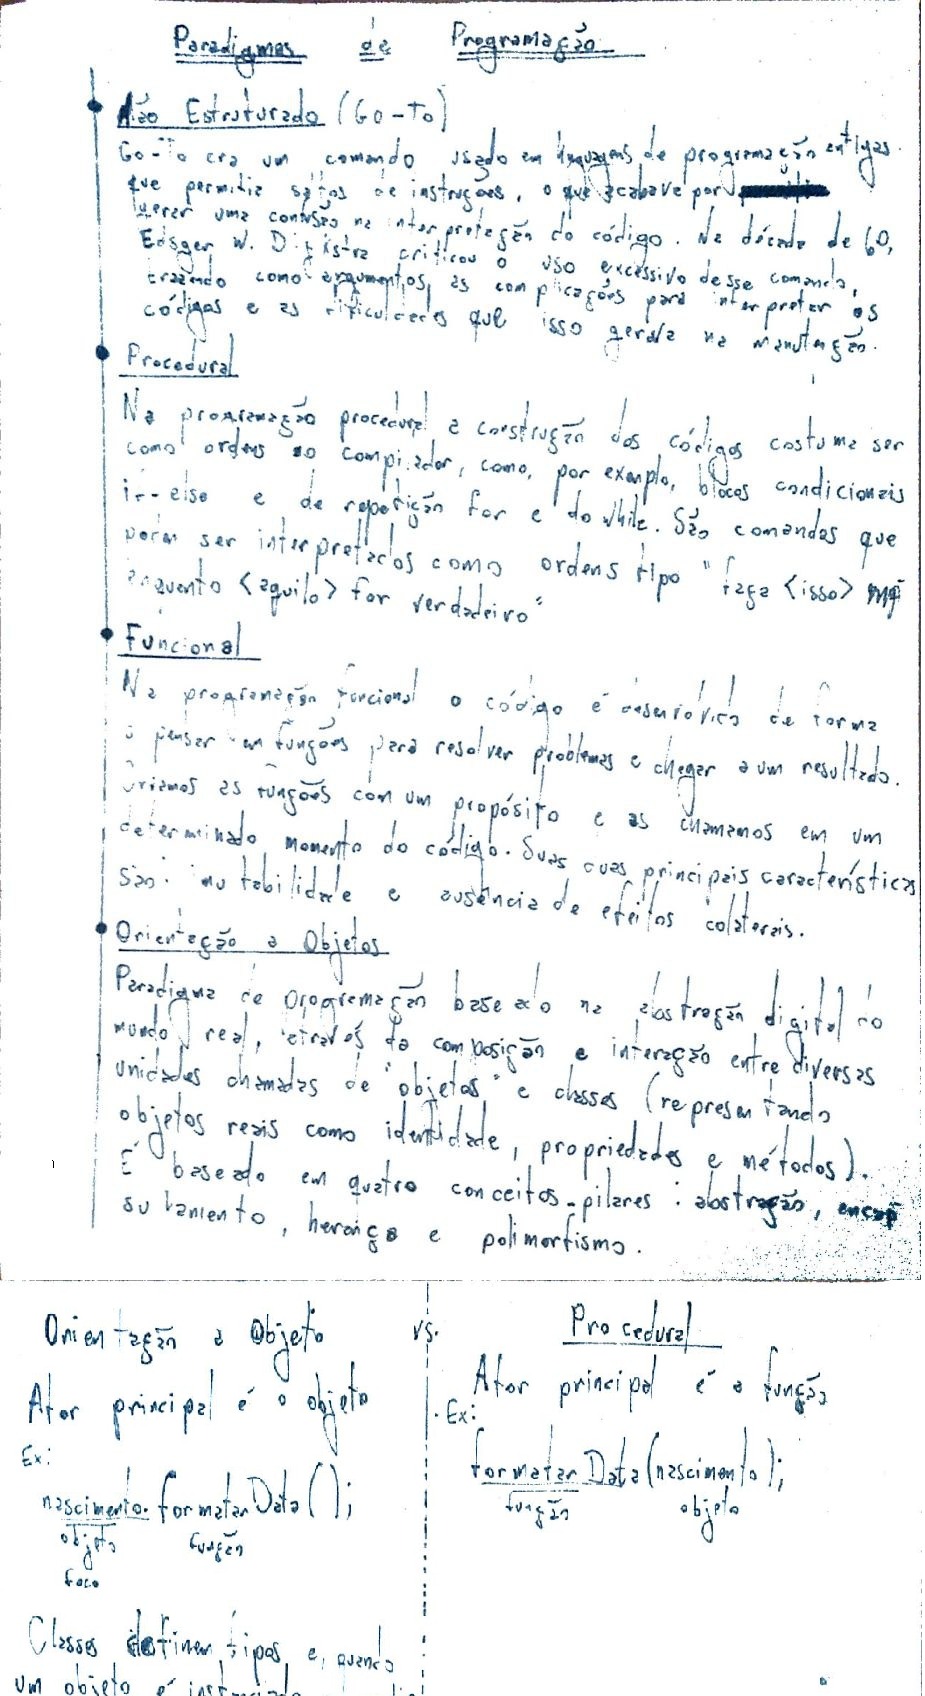 Paradigmas de Programação
Não Estruturado (Go-To)
Go-To era um comando usado em linguagens de programação antigas
que permitia saltos de instruções, o que acabava por
gerar uma confusão na interpretação do código. Na década de 60,
Edsger W. Dijkstra criticou o uso excessivo desse comando,
trazendo como argumentos, as complicações para interpretar os
códigos e as dificuldades que isso gerava na manutenção.
Procedural
Na programação procedural a construção dos códigos costuma ser
como ordens ao compilador, como, por exemplo, blocos condicionais
if-else e de repetição for e do while. São comandos que
podem ser interpretados como ordens tipo "faça <isso>
enquanto <aquilo> for verdadeiro"
Funcional
Na programação funcional o código é desenvolvido de forma
a pensar em funções para resolver problemas e chegar a um resultado.
Criamos as funções com um propósito e as chamamos em um
determinado momento do código. Suas duas principais características
são: imutabilidade e ausência de efeitos colaterais.
Orientação a Objetos
Paradigma de programação baseado na abstração digital do
mundo real, através da composição e interação entre diversas
unidades chamadas de "objetos" e classes (representando
objetos reais como identidade, propriedades e métodos).
É baseado em quatro conceitos-pilares: abstração, encap
sulamento, herança e polimorfismo.
Orientação a Objeto vs. Procedural
Ator principal é o objeto
Ex:
nascimento.formatarData();
objeto função
foco
Classes definem tipos e, quando
um objeto é instanciado
Ator principal é a função
Ex:
formatarData(nascimento);
função objeto